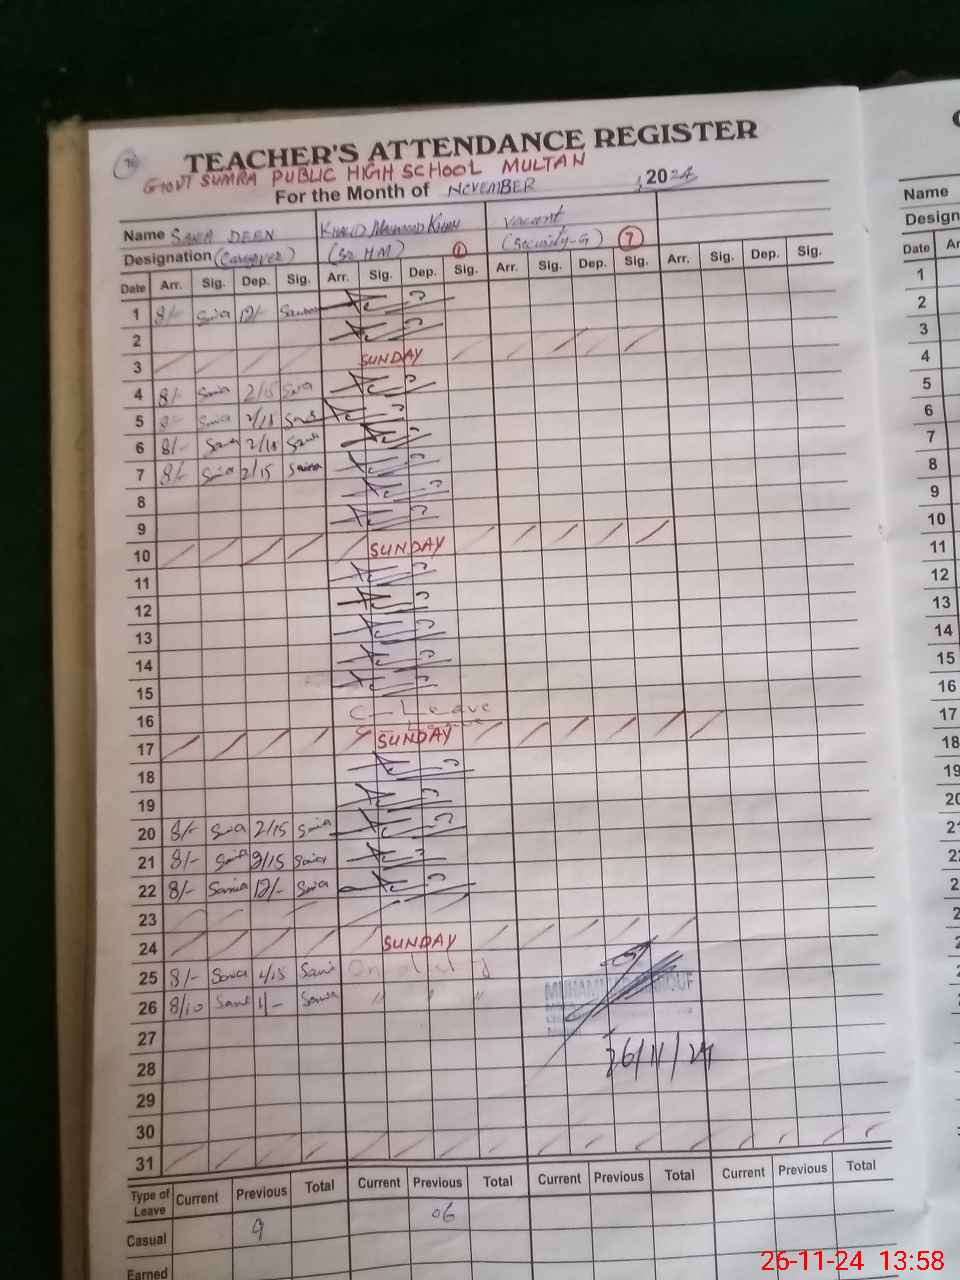 TEACHER'S ATTENDANCE REGISTER
GOVT SUMRA PUBLIC HIGH SCHOOL MULTAN
For the Month of NOVEMBER 2024
Name SANIA DEEN KHALID MAHMOOD KHAN Vacant Name
Designation (Caregiver) (SR HM) 1 (Security-G) 7 Design
Date Arr. Sig. Dep. Sig. Arr. Sig. Dep. Sig. Arr. Sig. Dep. Sig. Arr. Sig. Dep. Sig. Date
1 8/- Sania 12/- 1
2 2
3 SUNDAY 3
4 8/- Sania 2/15 Sania 4
5 Sania 2/15 Sania 5
6 8/- Sania 2/15 Sania 6
7 8/- Sania 2/15 Sania 7
8 8
9 9
10 SUNDAY 10
11 11
12 12
13 13
14 14
15 15
16 C-Leave 16
17 SUNDAY 17
18 18
19 19
20 8/- Sania 2/15 Sania
21 8/- Sania 2/15 Sania
22 8/- Sania 12/- Sania
23
24 SUNDAY
25 8/- Sania 1/15 Sania
26 8/10 Sania Sania " " "
27
28 26/11/24
29
30
31
Type of Leave Current Previous Total Current Previous Total Current Previous Total Current Previous Total
Casual 9 06
Earned
26-11-24 13:58